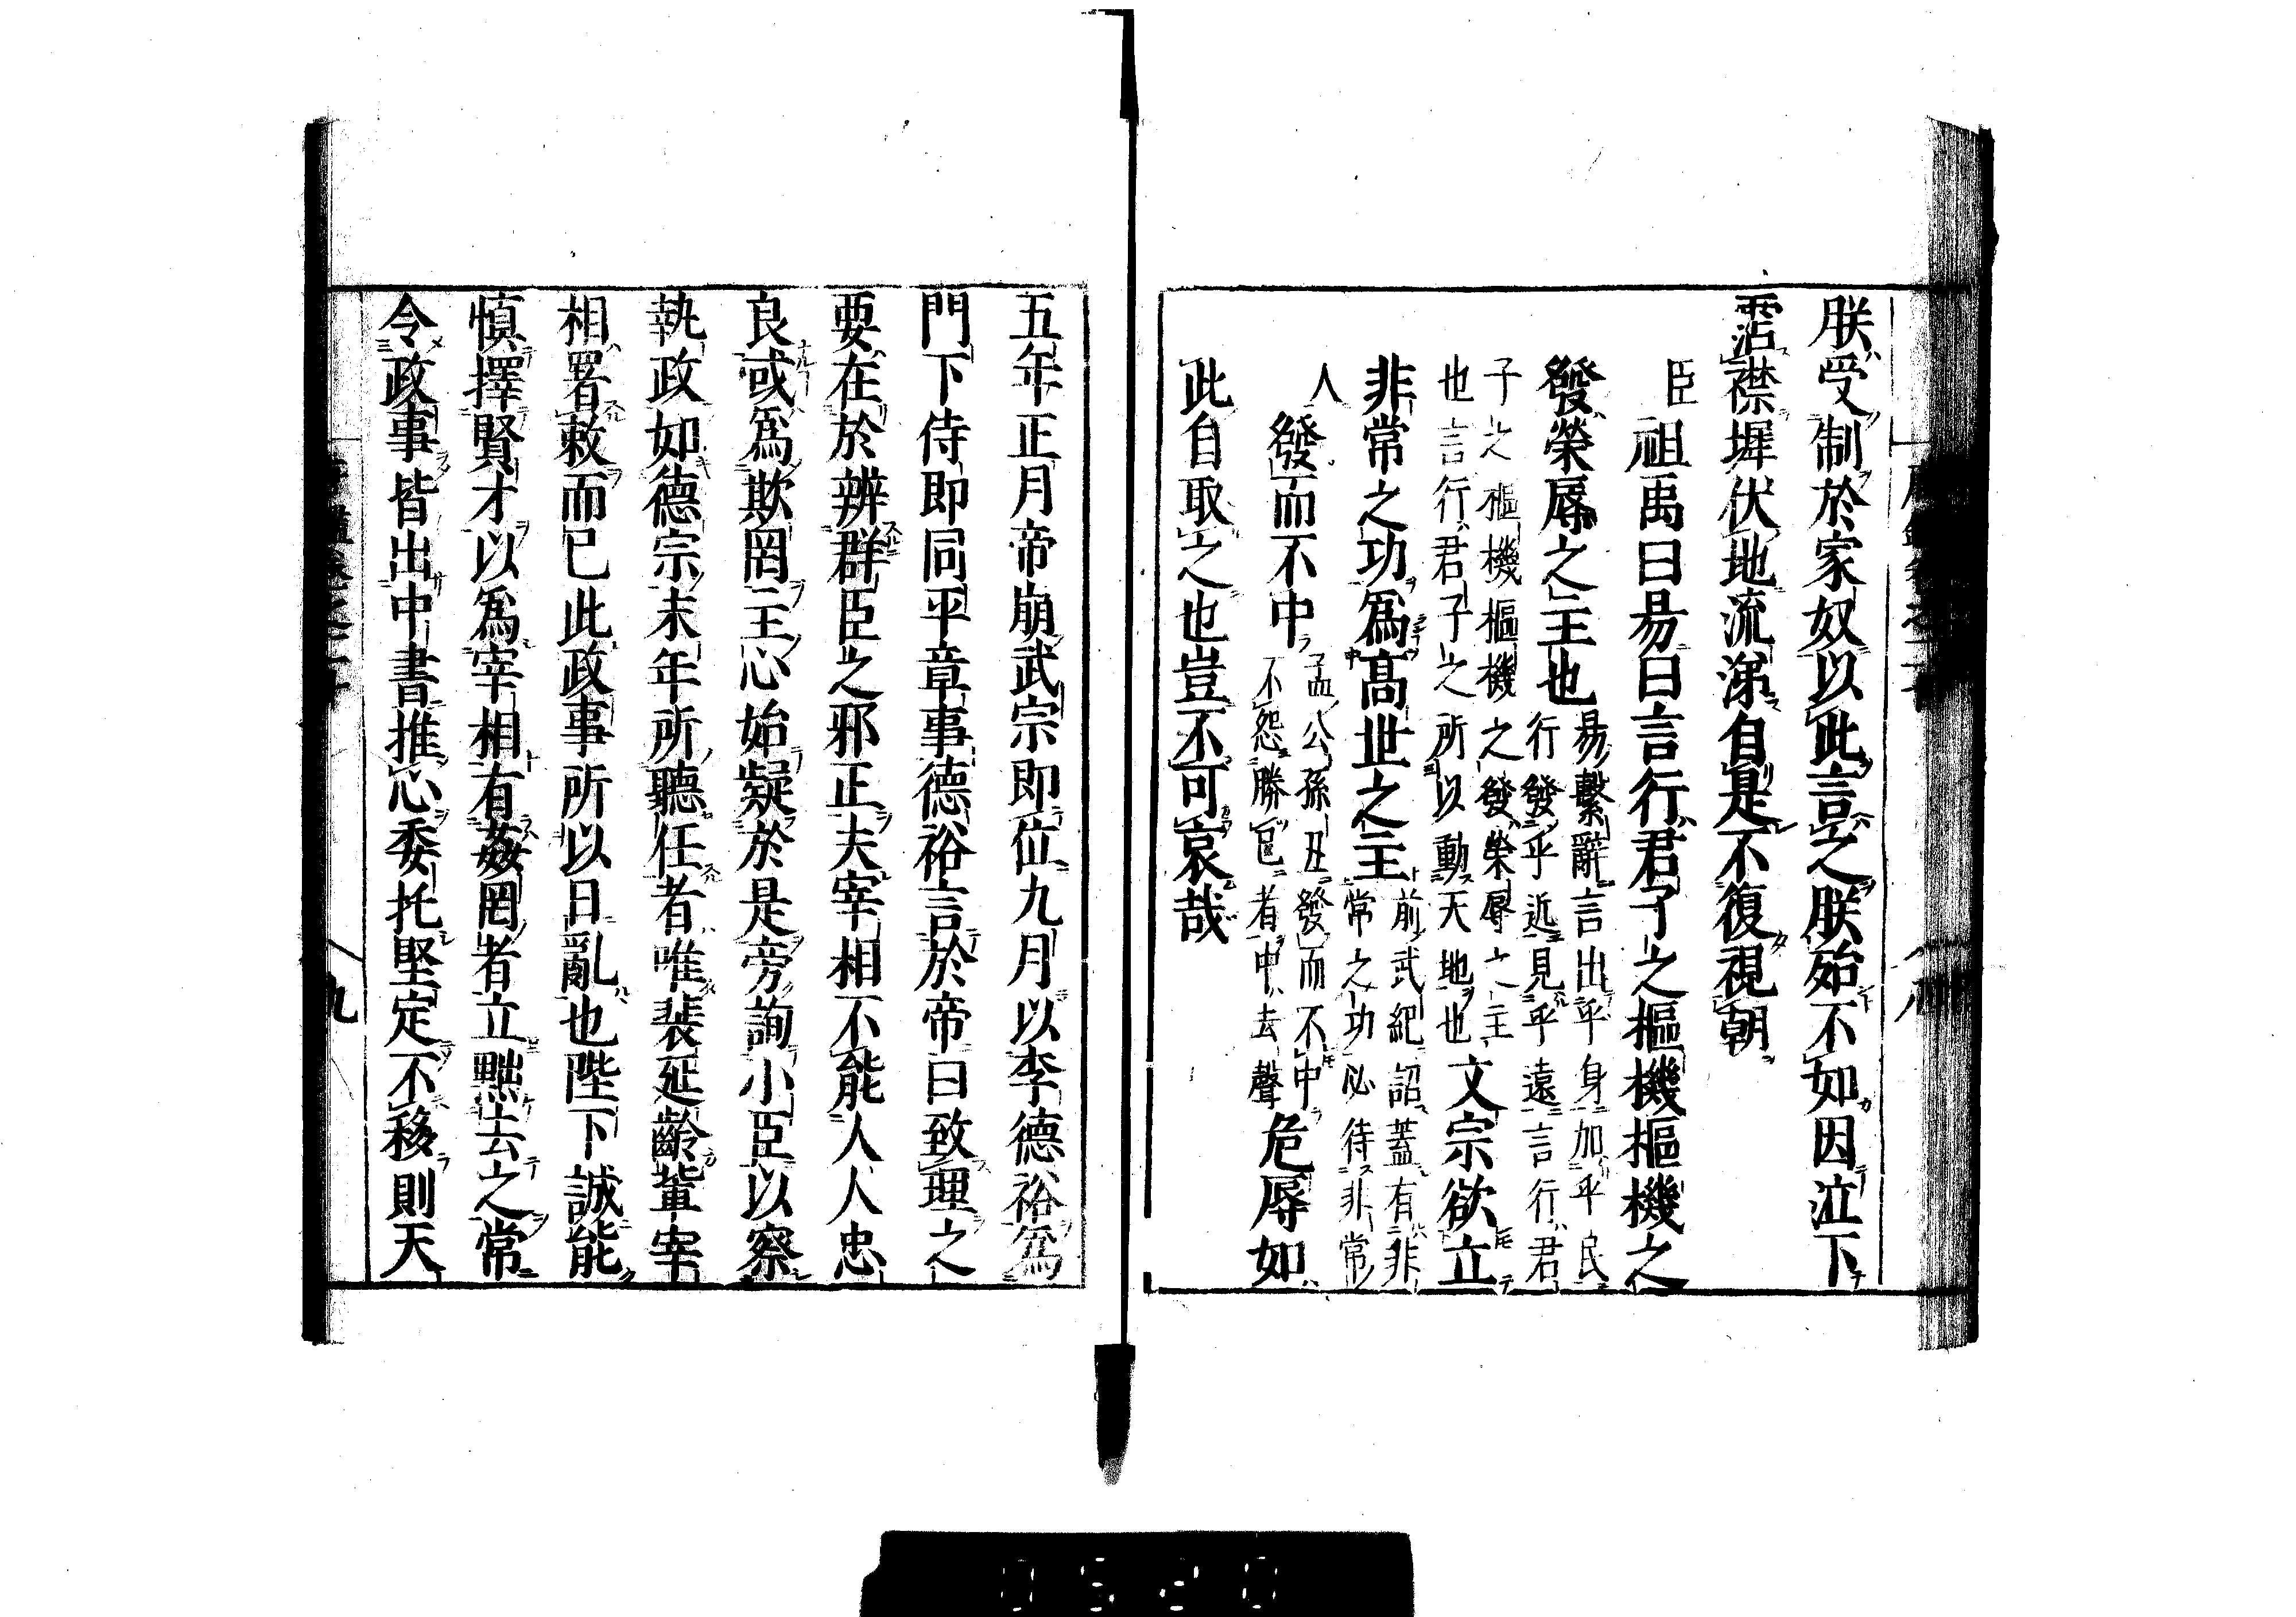 朕受制於家奴以此言之朕殆不如因泣下
霑襟墀伏地流涕自是不復視朝
臣祖禹曰易曰言行君子之樞機樞機之
發榮辱之主也易繫辭言出乎身加乎民
行發乎近見乎遠言行君
子之樞機樞機之發榮辱之主
也言行君子之所以動天地也文宗欲立
非常之功爲高世之主前武紀詔蓋有非
常之功必待非常
人發而不中孟公孫丑發而不中
不怨勝己者中去聲危辱如
此自取之也豈不可哀哉
五年正月帝崩武宗即位九月以李德裕爲
門下侍郎同平章事德裕言於帝曰致理之
要在於辨群臣之邪正夫宰相不能人人忠
良或爲欺罔主心始疑於是旁詢小臣以察
執政如德宗末年所聽任者唯裴延齡輩宰
相署敕而已此政事所以日亂也陛下誠能
慎擇賢才以爲宰相有姦罔者立黜去之常
令政事皆出中書推心委托堅定不移則天
九
0520